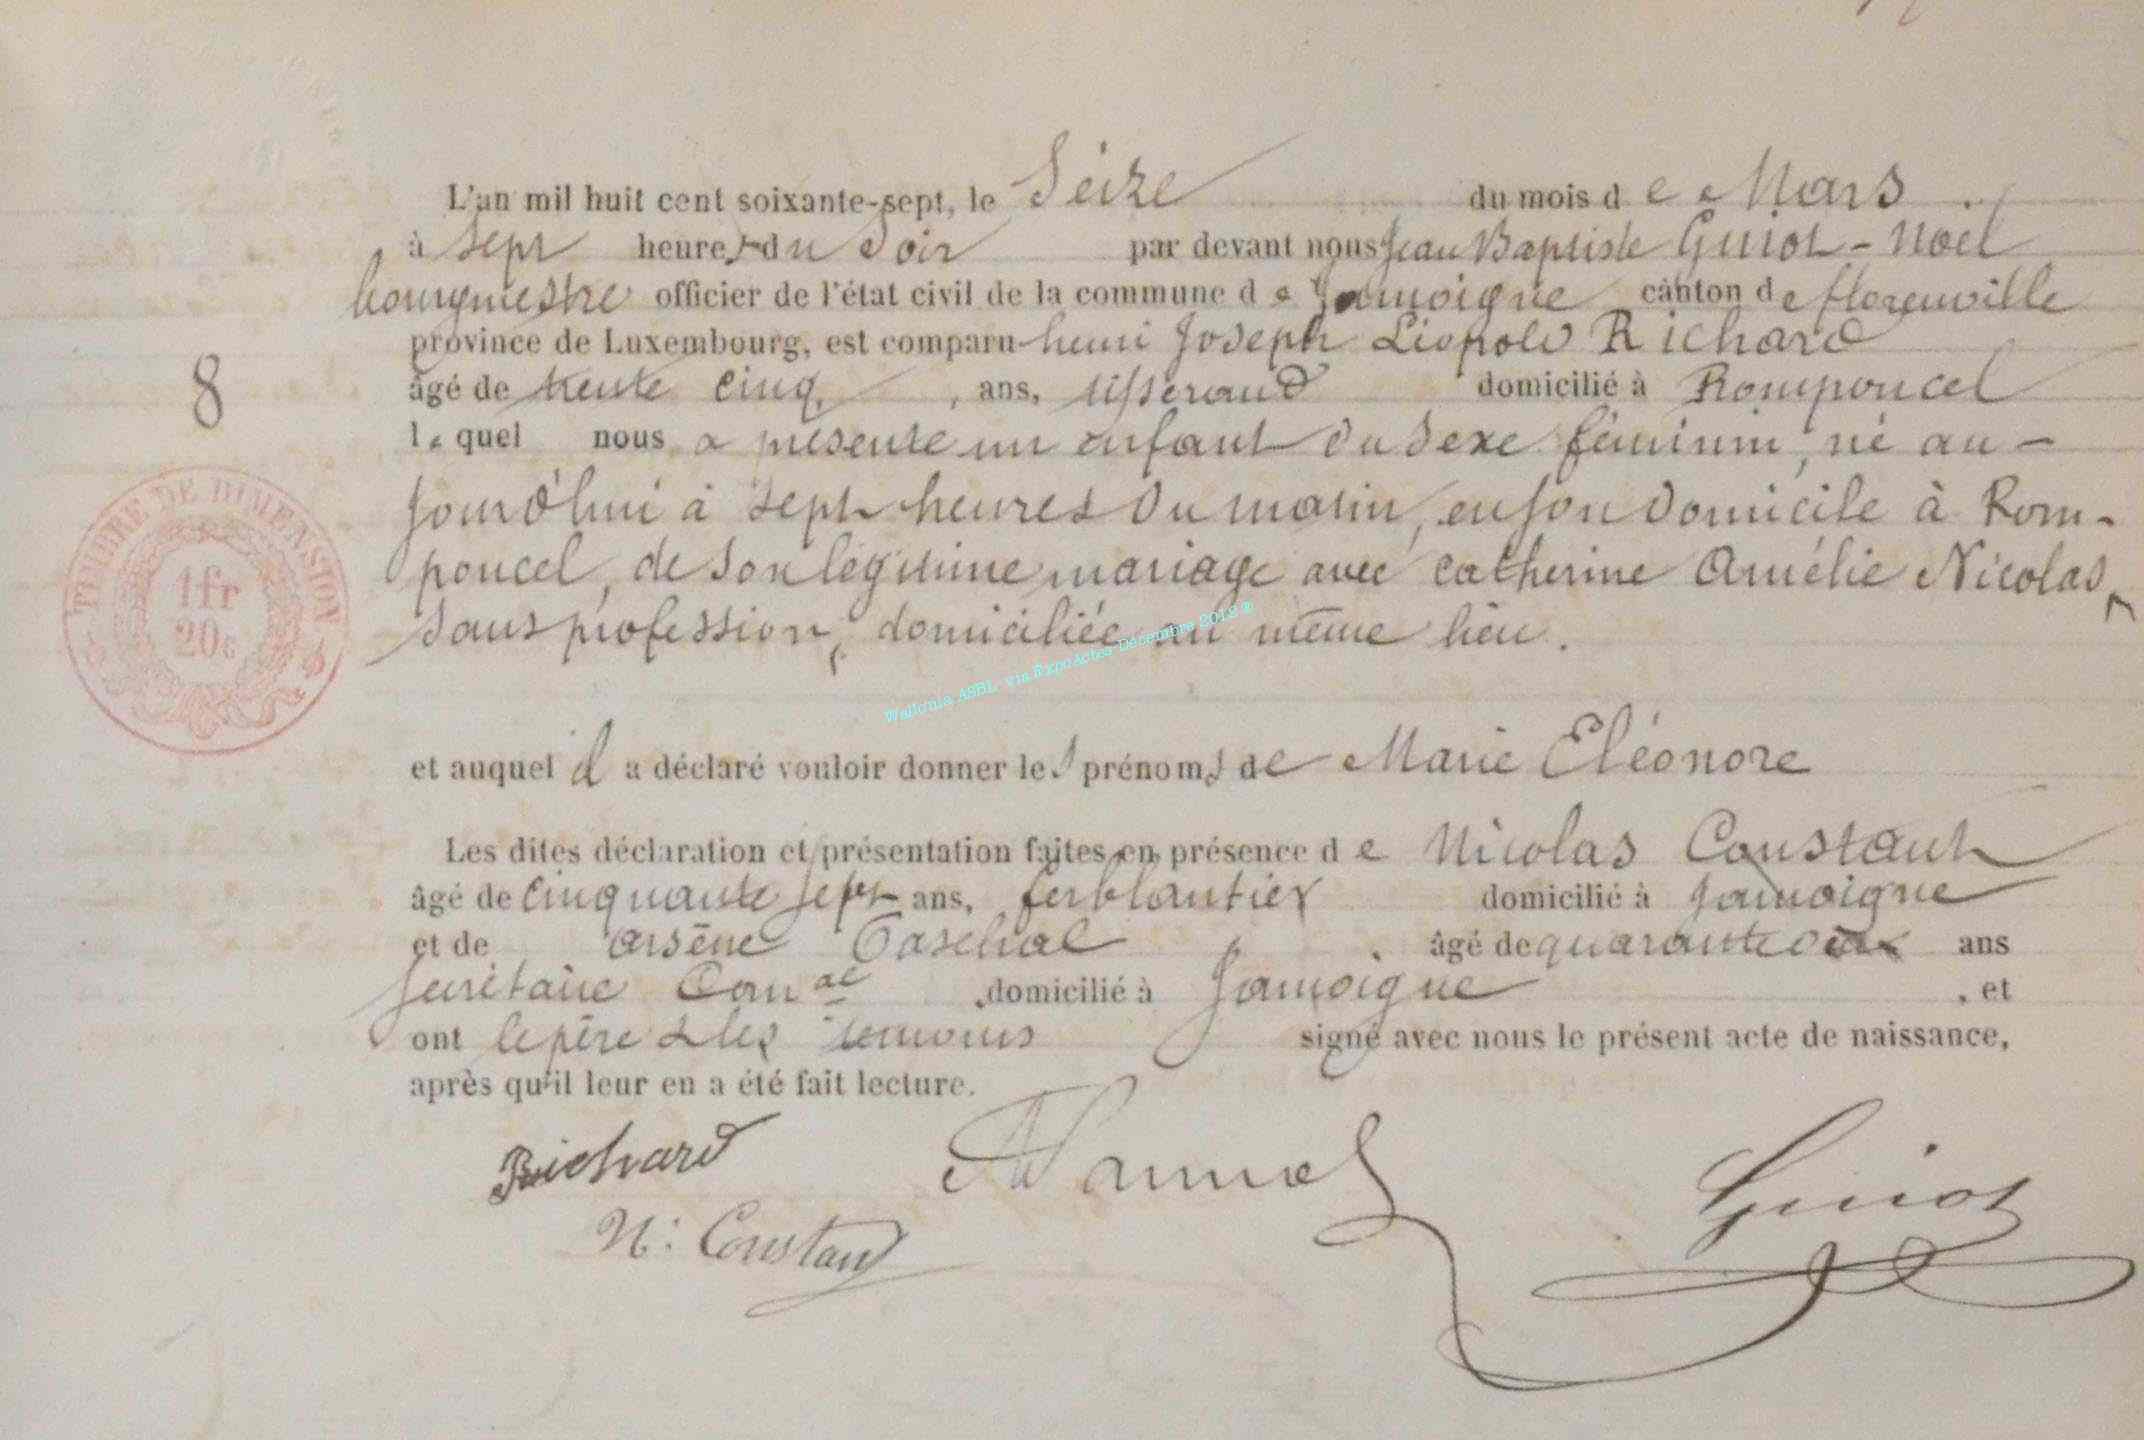 L'an mil huit cent soixante-sept, le Seize du mois de Mars.
à Sept heures du Soir par devant nous Jean Baptiste Guiot-Noël
bourgmestre officier de l'état civil de la commune de Jamoigne canton de florenville
province de Luxembourg, est comparu henri Joseph Léopold Richard
âgé de trente cinq, ans, tisserand domicilié à Romponcel
lequel nous a présenté un enfant du sexe féminin, né au-
8
jourd'hui à Sept heures du matin, en son domicile à Rom-
poncel, de son légitime mariage avec Catherine Amélie Nicolas,
TIMBRE DE DIMENSION
1fr
20c
sans profession, domiciliée au même lieu.
Wallonia ASBL via ExpoActes Décembre 2012 ®
et auquel il a déclaré vouloir donner les prénoms de Marie Eléonore
Les dites déclaration et présentation faites en présence de Nicolas Constant
âgé de cinquante sept ans, ferblantier domicilié à Jamoigne
et de arsène âgé de quarante ans
secrétaire Comal domicilié à Jamoigne, et
ont le père & les témoins signé avec nous le présent acte de naissance,
après qu'il leur en a été fait lecture.
Richard
N: Constant
Guiot